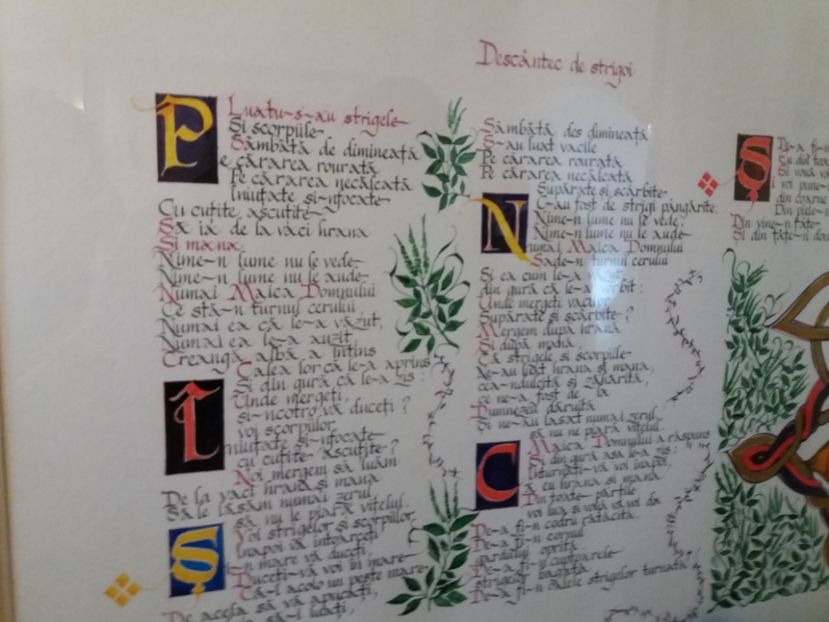 Descântec de strigoi
Luatu-s-au strigele
Și scorpiile
Sâmbătă de dimineață
Pe cărarea rourată
Pe cărarea necălcată
Iniuțate și-nfocate
Cu cuțite ascuțite
Să ia de la vaci hrana
Și mana.
Nime-n lume nu le vede,
Nime-n lume nu le aude,
Numai Maica Domnului
Ce stă-n turnul cerului,
Numai ea că le-a văzut,
Numai ea le-a auzit
Creangă albă a întins
Calea lor că le-a aprins
Și din gură că le-a zis:
Unde mergeți,
și-ncotro vă duceți?
voi scorpiilor
Iniuțate și-nfocate
cu cuțite ascuțite?
Noi mergem să luăm
De la vaci hrană și mană
Să le lăsăm numai zerul,
să nu le piară vițelul.
Voi strigelor și scorpiilor,
Înapoi vă întoarceți
Și-n mare vă duceți,
Duceți-vă voi în mare
Că-i acolo un pește mare
De acela să vă apucați,
să-l luați,
Sâmbătă des dimineață
S-au luat vacile
Pe cărarea rourată
Pe cărarea necălcată
Supărate și scârbite
C-au fost de strigi pângărite.
Nime-n lume nu le vede,
Nime-n lume nu le aude
Numai Maica Domnului
Șade-n turnul cerului
Și ea cum le-a văzut
din gură că le-a vorbit:
Unde mergeți vacilor
Supărate și scârbite?
Mergem după hrană
Și după mană
Că strigele și scorpiile
Ne-au luat hrana și mana,
cea-ndulcită și zăhărită,
ce ne-a fost de la
Dumnezeu dăruită
Și ne-au lăsat numai zerul
să nu ne piară vițelul.
Maica Domnului a răspuns
Și din gură așa le-a zis:
Înturnați-vă voi înapoi,
Că eu hrană și mană
Din toate părțile
voi lua și vouă vă voi da
De-a fi-n codru rătăcită
De-a fi-n cornul
gardului oprită
De-a fi-n cuptoarele
strigelor băgată
De-a fi-n oalele strigelor turnată
Și
voi pune-
din coarne
Din piele-n
Din vine-n țâțe
Și din țâțe-n